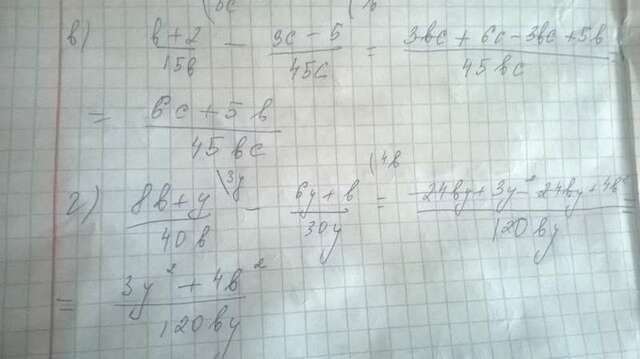 (6c (b
в) в+2/15в − 3c−5/45c = 3вc+6c−3вc+5в/45вc
= 6c+5в/45вc
\3y (4в
г) 8в+y/40в − 6y+в/30y = 24вy+3y²−24вy+4в²/120вy =
= 3y²+4в²/120вy